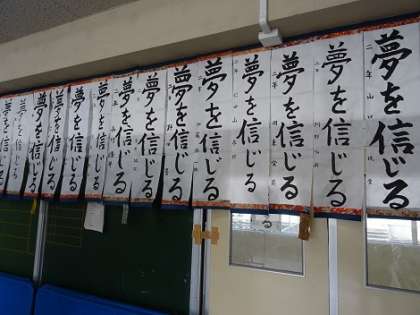 夢を信じる
夢を信じる
夢を信じる
夢を信じる
夢を信じる
夢を信じる
夢を信じる
夢を信じる
夢を信じる
夢を信じる
夢を信じる
夢を信じる
夢を信じる